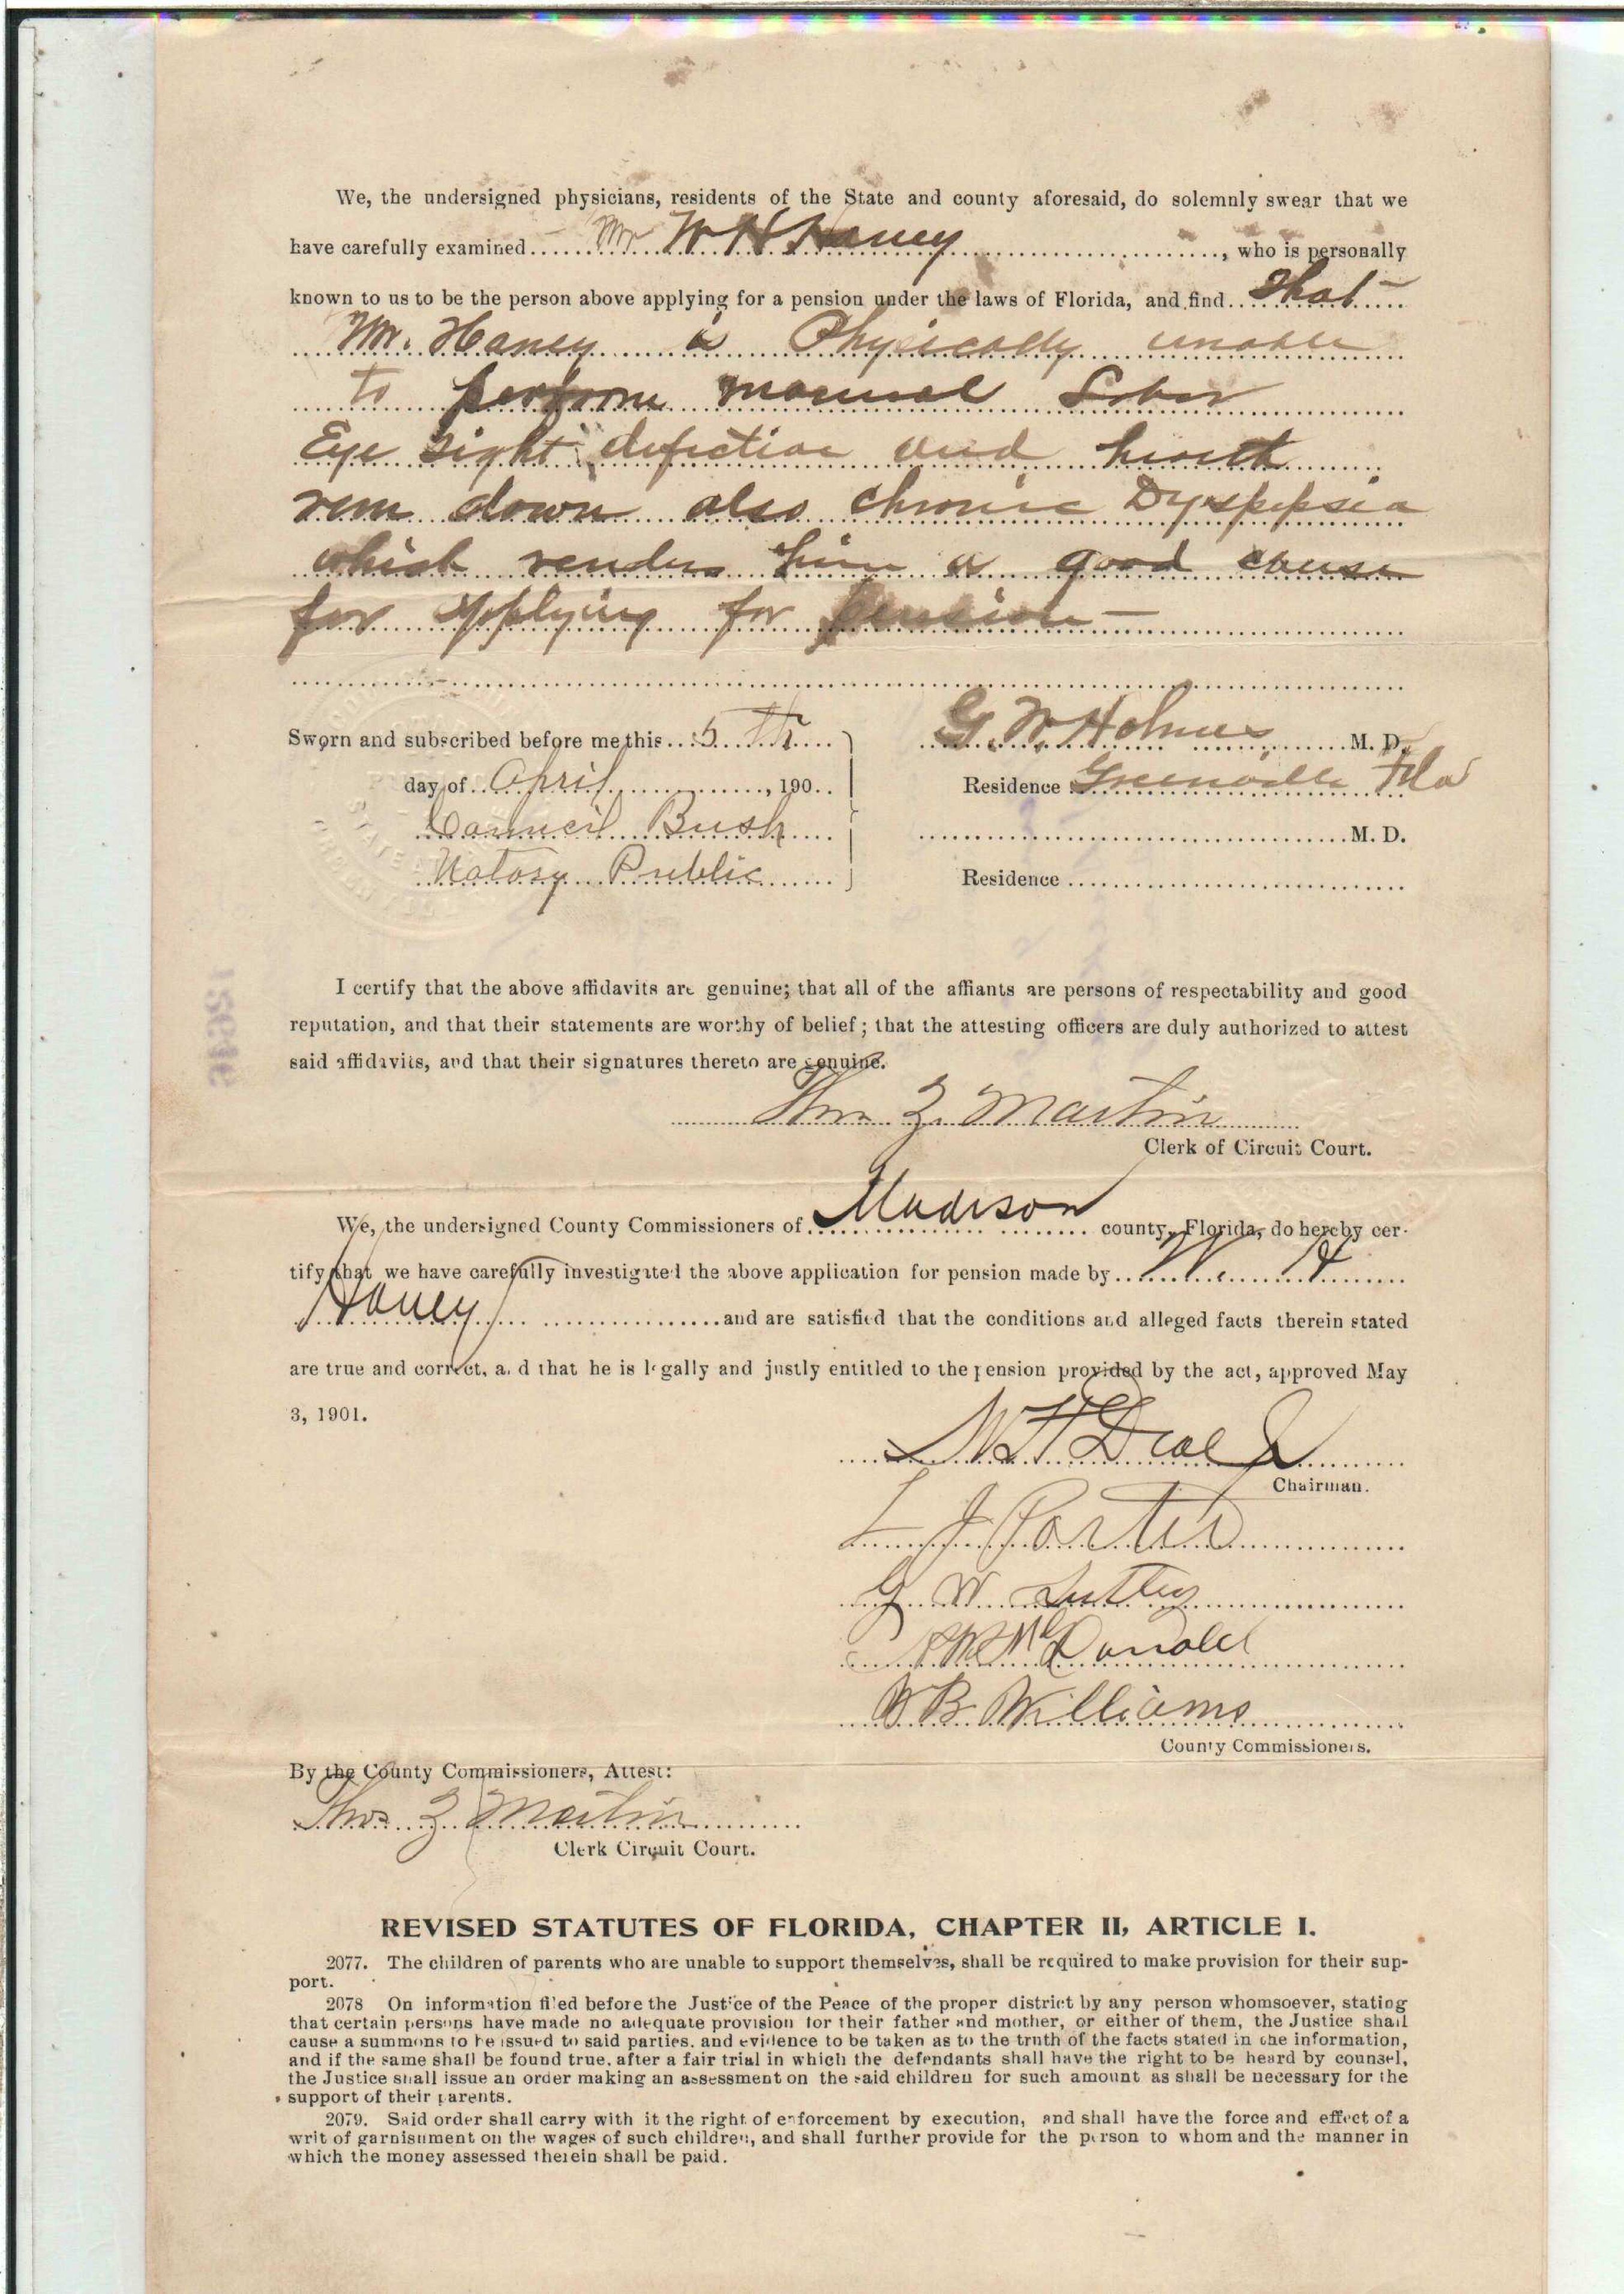 We, the undersigned physicians, residents of the State and county aforesaid, do solemnly swear that we
have carefully examined Mr W H Haney, who is personally
known to us to be the person above applying for a pension under the laws of Florida, and find that
Mr. Haney is Physically unable
to perform manual Labor
Eye sight defective and health
run down also chronic Dyspepsia
which renders him a good cause
for applying for pension
Sworn and subscribed before me this 5th
G. W. Holmes M. D.
day of April, 190
Residence Greenville Fla
Council Bush
M. D.
Notary Public
Residence
I certify that the above affidavits are genuine; that all of the affiants are persons of respectability and good
reputation, and that their statements are worthy of belief; that the attesting officers are duly authorized to attest
said affidavits, and that their signatures thereto are genuine.
Z. Martin
Clerk of Circuit Court.
We, the undersigned County Commissioners of Madison county, Florida, do hereby cer-
tify that we have carefully investigated the above application for pension made by W. H
Haney and are satisfied that the conditions and alleged facts therein stated
are true and correct, and that he is legally and justly entitled to the pension provided by the act, approved May
3, 1901.
Chairman.
L J Porter
G W
McDonald
W B Williams
County Commissioners.
By the County Commissioners, Attest:
Thos Z Martin
Clerk Circuit Court.
REVISED STATUTES OF FLORIDA, CHAPTER II, ARTICLE I.
2077. The children of parents who are unable to support themselves, shall be required to make provision for their sup-
port.
2078 On information filed before the Justice of the Peace of the proper district by any person whomsoever, stating
that certain persons have made no adequate provision for their father and mother, or either of them, the Justice shall
cause a summons to be issued to said parties, and evidence to be taken as to the truth of the facts stated in the information,
and if the same shall be found true, after a fair trial in which the defendants shall have the right to be heard by counsel,
the Justice shall issue an order making an assessment on the said children for such amount as shall be necessary for the
support of their parents.
2079. Said order shall carry with it the right of enforcement by execution, and shall have the force and effect of a
writ of garnishment on the wages of such children, and shall further provide for the person to whom and the manner in
which the money assessed therein shall be paid.